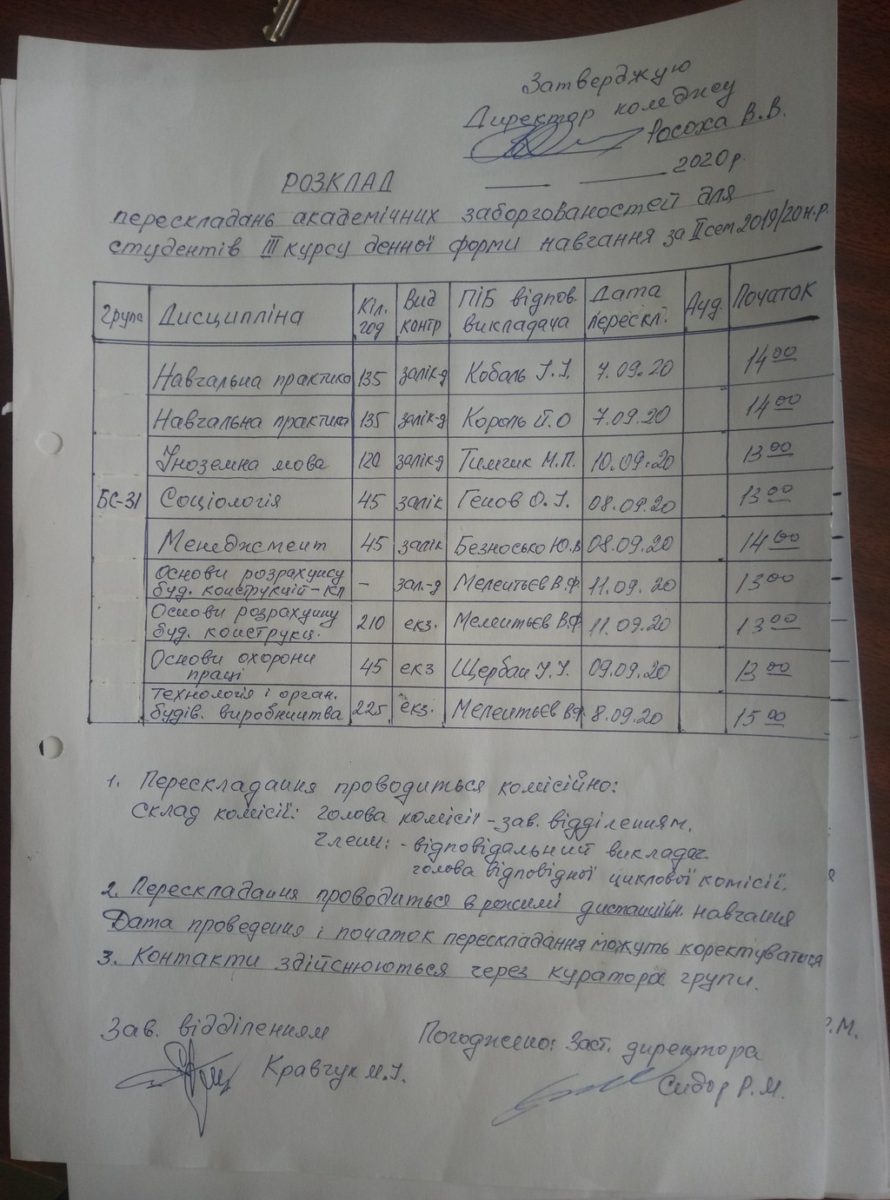 Затверджую
Директор коледжу
Росоха В.В.
2020р.
РОЗКЛАД
перескладань академічних заборгованостей для
студентів III курсу денної форми навчання за II сем 2019/20 н.р.
Група Дисципліна Кіл. год Вид контр ПІБ відпов. викладача Дата перескл. Ауд. Початок
Навчальна практика 135 залік-д Кобаль І.І. 7.09.20 14 00
Навчальна практика 135 залік-д Король Й.О 7.09.20 14 00
Іноземна мова 120 залік-д Тимчик М.П. 10.09.20 13 00
БС-31 Соціологія 45 залік Генов О.І. 08.09.20 13 00
Менеджмент 45 залік Безносько Ю.В 08.09.20 14 00
Основи розрахунку
буд. конструкцій-КП - зал.-д Мелентьєв В.Ф 11.09.20 13 00
Основи розрахунку
буд. конструкц. 210 екз. Мелентьєв В.Ф 11.09.20 13 00
Основи охорони
праці 45 екз Щербан І.І. 09.09.20 13 00
Технологія і орган.
будів. виробництва 225 екз. Мелентьєв В.Ф 8.09.20 15 00
1. Перескладання проводиться комісійно:
склад комісії: голова комісії - зав. відділенням.
члени: - відповідальний викладач.
голова відповідної циклової комісії.
2. Перескладання проводиться в режимі дистанційн. навчання
Дата проведення і початок перескладання можуть коректуватися
3. Контакти здійснюються через куратора групи.
Зав. відділенням Погоджено: Заст. директора
Кравчук М.І. Сидор Р.М.
Р.М.